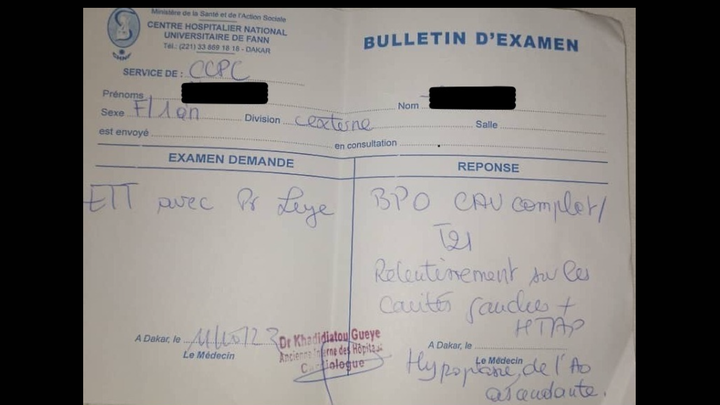 Ministère de la Santé et de l'Action Sociale
CENTRE HOSPITALIER NATIONAL
UNIVERSITAIRE DE FANN
Tél.: (221) 33 869 18 18 - DAKAR
BULLETIN D'EXAMEN
SERVICE DE : CCPC
Prénoms
Nom
Sexe F/1an Division externe Salle
est envoyé en consultation
EXAMEN DEMANDE
REPONSE
ETT avec Pr Leye
BPO CAV complet/
T21
Retentissement sur les
cavités gauches +
HTAP
A Dakar, le
Le Médecin
Dr Khadidiatou Gueye
Ancienne Interne des Hôpitaux
Cardiologue
A Dakar, le
Le Médecin
Hypoplasie de l'Ao
ascendante.